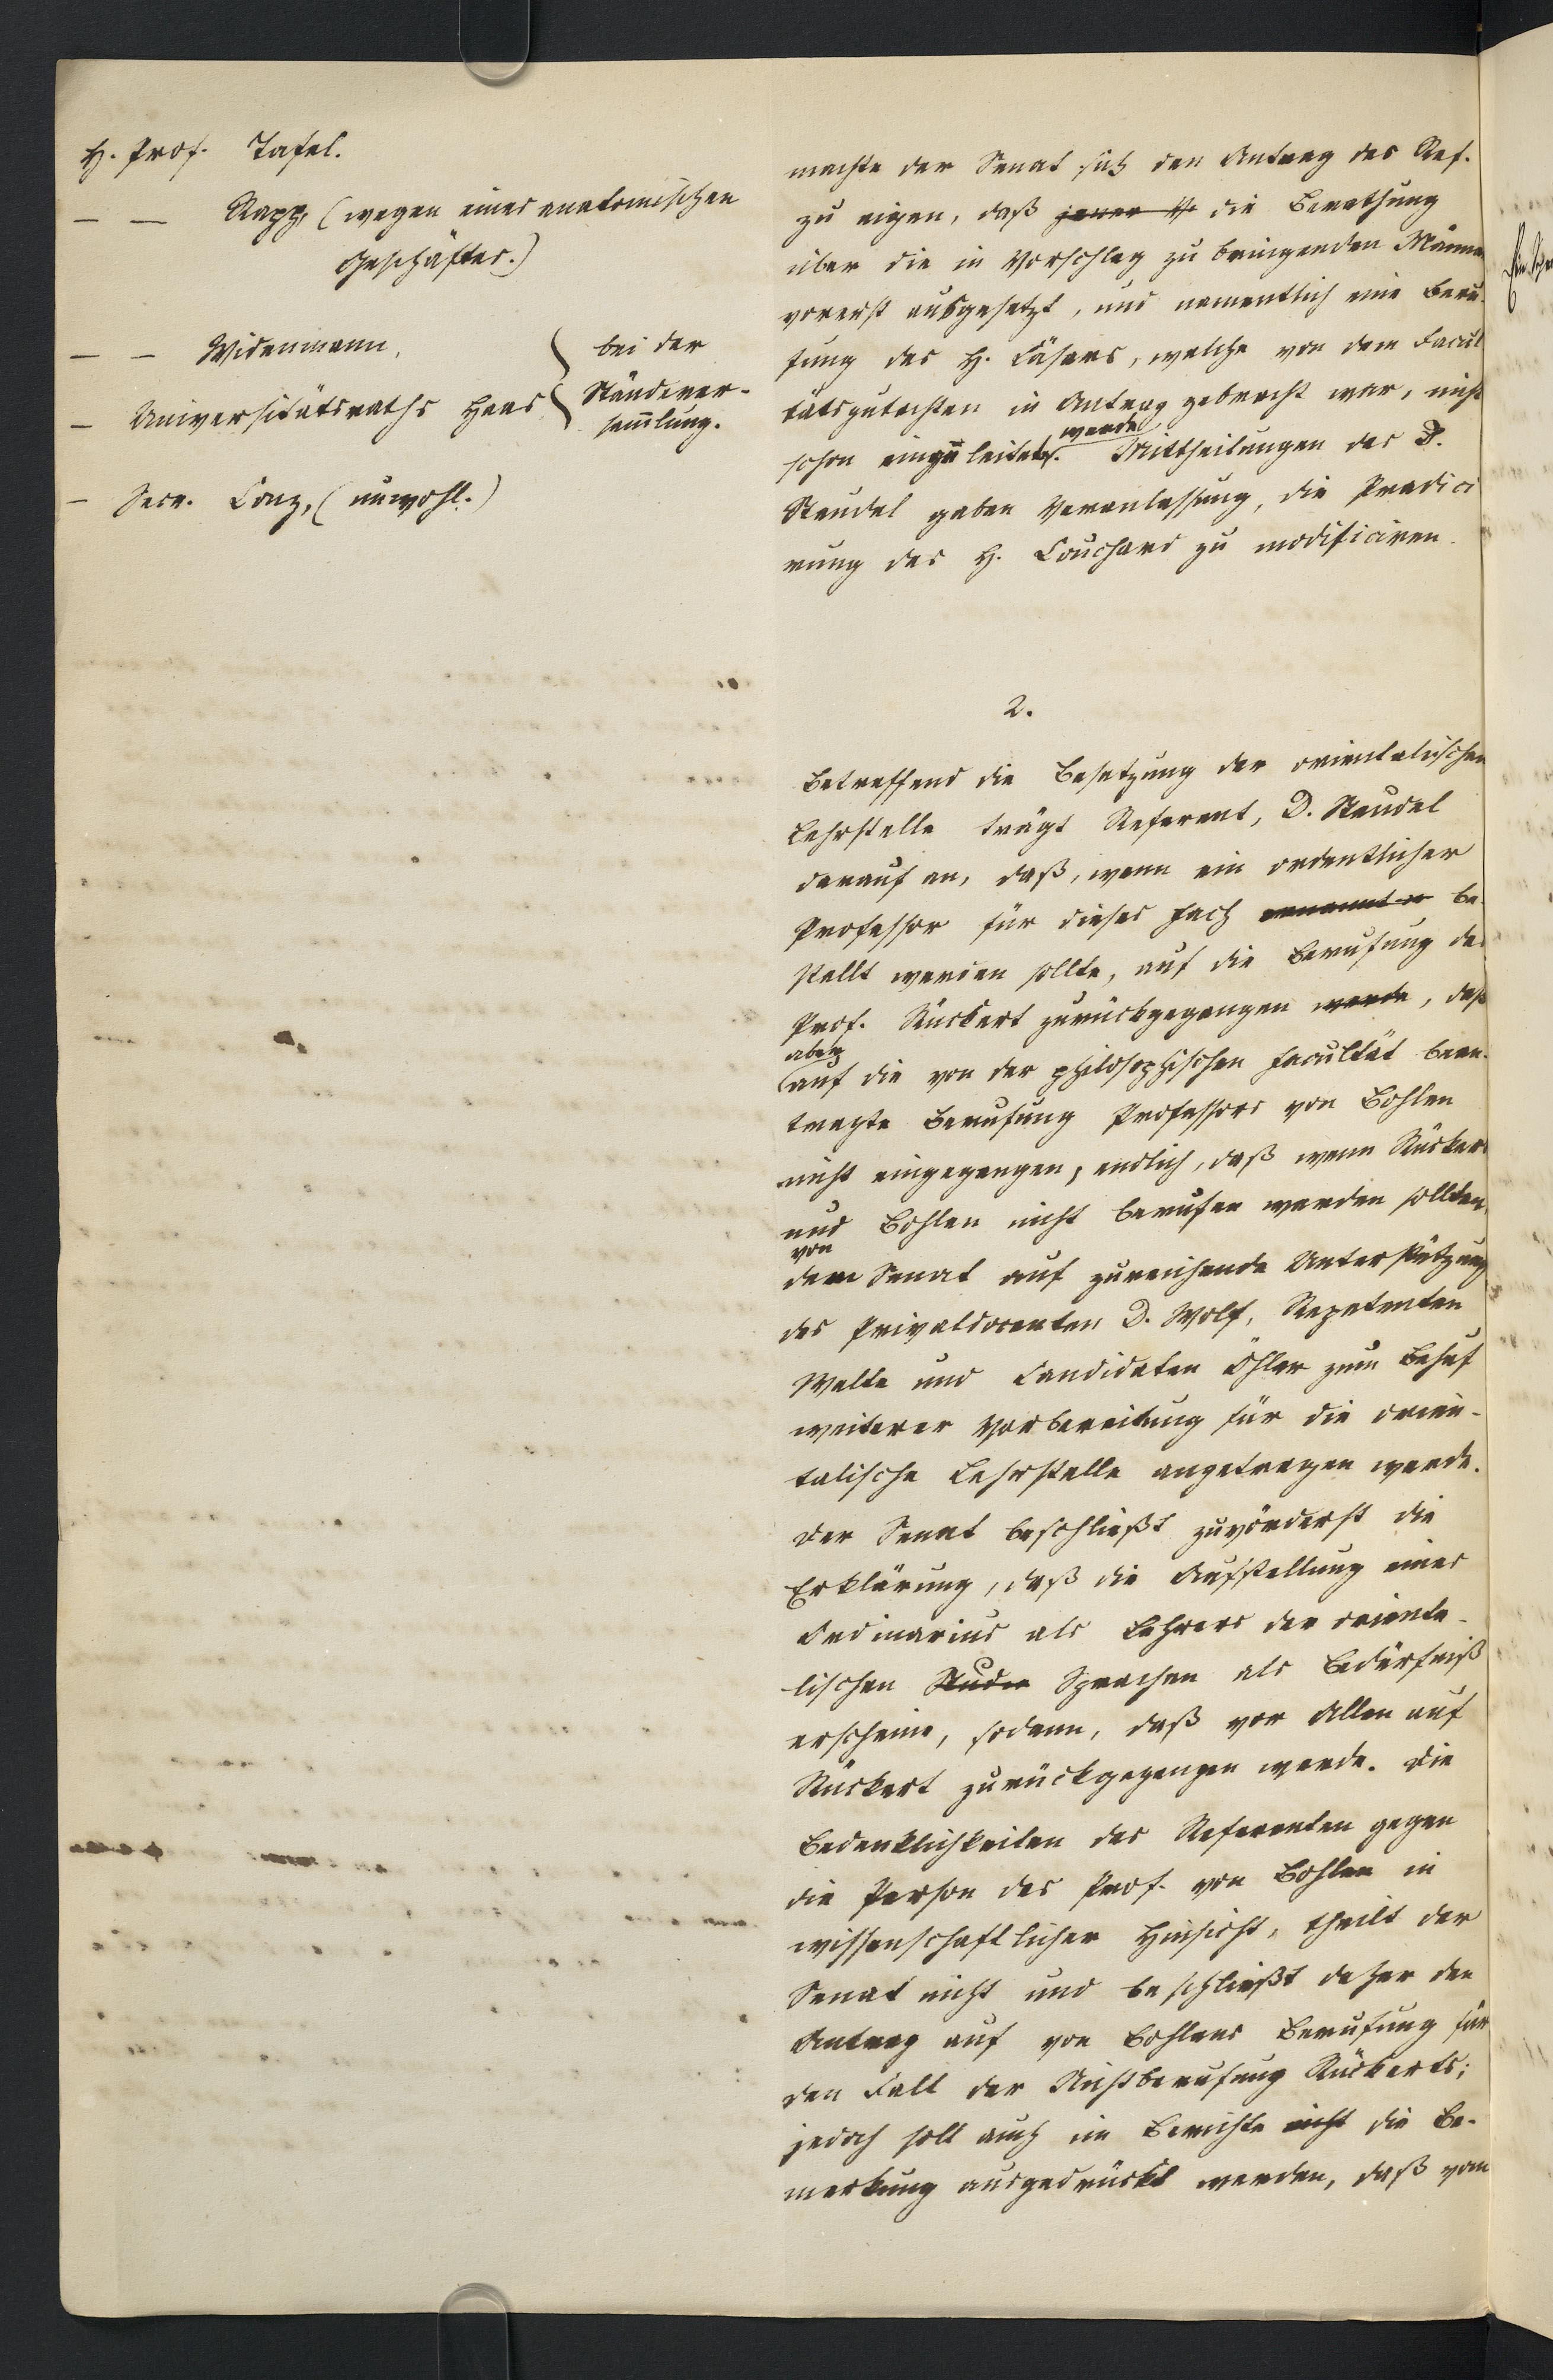 H. Prof. Tafel.
— — Rapp, (wegen eines anatomischen
Geschäftes.)
— — Widenmann,
bei der
— Universitätsraths Haas
Ständever-
sam̄lung.
— Secr. Conz, (unwohl.)
machte der Senat sich den Antrag des Ref.
zu eigen, daß die Berathung
über die in Vorschlag zu bringenden Männer
vorerst ausgesetzt, und namentlich eine Beru-
fung des H. , welche von dem Facul
tätsgutachten in Antrag gebracht war, nicht
werde
schon eingeleitet. Mittheilungen des D.
Steudel gaben Veranlassung, die Prädici
rung des H. zu modificiren.
2.
Betreffend die Besetzung der orientalischen
Lehrstelle trägt Referent, D. Steudel
darauf an, daß, wenn ein ordentlicher
Professor für dieses Fach ernannt w be-
stellt werden sollte, auf die Berufung des
Prof. Rückert zurückgegangen werde, daß
aber
auf die von der philosophischen Facultät bean-
tragte Berufung Professors von Bohlen
nicht eingegangen, endlich, daß wenn Rückert
und Bohlen nicht berufen werden sollten,
von
dem Senat auf zureichende Unterstützung
des Privatdocenten D. Wolf, Repetenten
Welte und Candidaten Öhler zum Behuf
weiterer Vorbereitung für die orien-
talische Lehrstelle angetragen werde.
Der Senat beschließt zuvörderst die
Erklärung, daß die Aufstellung eines
Ordinarius als Lehrers der orienta-
lischen Studie Sprachen als Bedürfniß
erscheine, sodann, daß vor Allen auf
Rückert zurückgegangen werde. Die
Bedenklichkeiten des Referenten gegen
die Person des Prof. von Bohlen in
wissenschaftlicher Hinsicht, theilt der
Senat nicht und beschließt daher den
Antrag auf von Bohlens Berufung für
den Fall der Nichtberufung Rückerts;
jedoch soll auch im Berichte nicht die Be-
merkung ausgedrückt werden, daß von